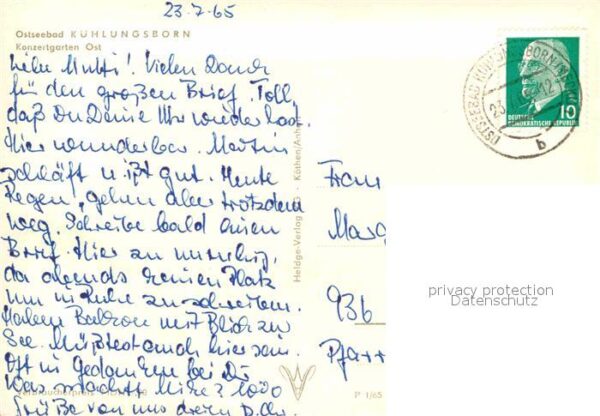 23.7.65
Ostseebad KÜHLUNGSBORN
Konzertgarten Ost
Liebe Mutti! Vielen Dank
für den großen Brief. Toll,
daß Du Deine Uhr wieder hast.
Hier wunderbar. Martin
schläft u. ißt gut. Heute
Regen, gehn aber trotzdem
weg. Schreibe bald einen
Brief. Hier zu unruhig,
da abends keinen Platz
um in Ruhe zu schreiben.
Haben Balkon mit Blick zur
See. Müßtest auch hier sein.
Oft in Gedanken bei Dir
Was macht 1000
Grüße von uns dreien
OSTSEEBAD KÜHLUNGSBORN
23.7.
12
b
10
DEUTSCHE
DEMOKRATISCHE REPUBLIK
Heldge-Verlag
Köthen/Anh
Frau
Marg
936
Pfa
privacy protection
Datenschutz
P 1/65